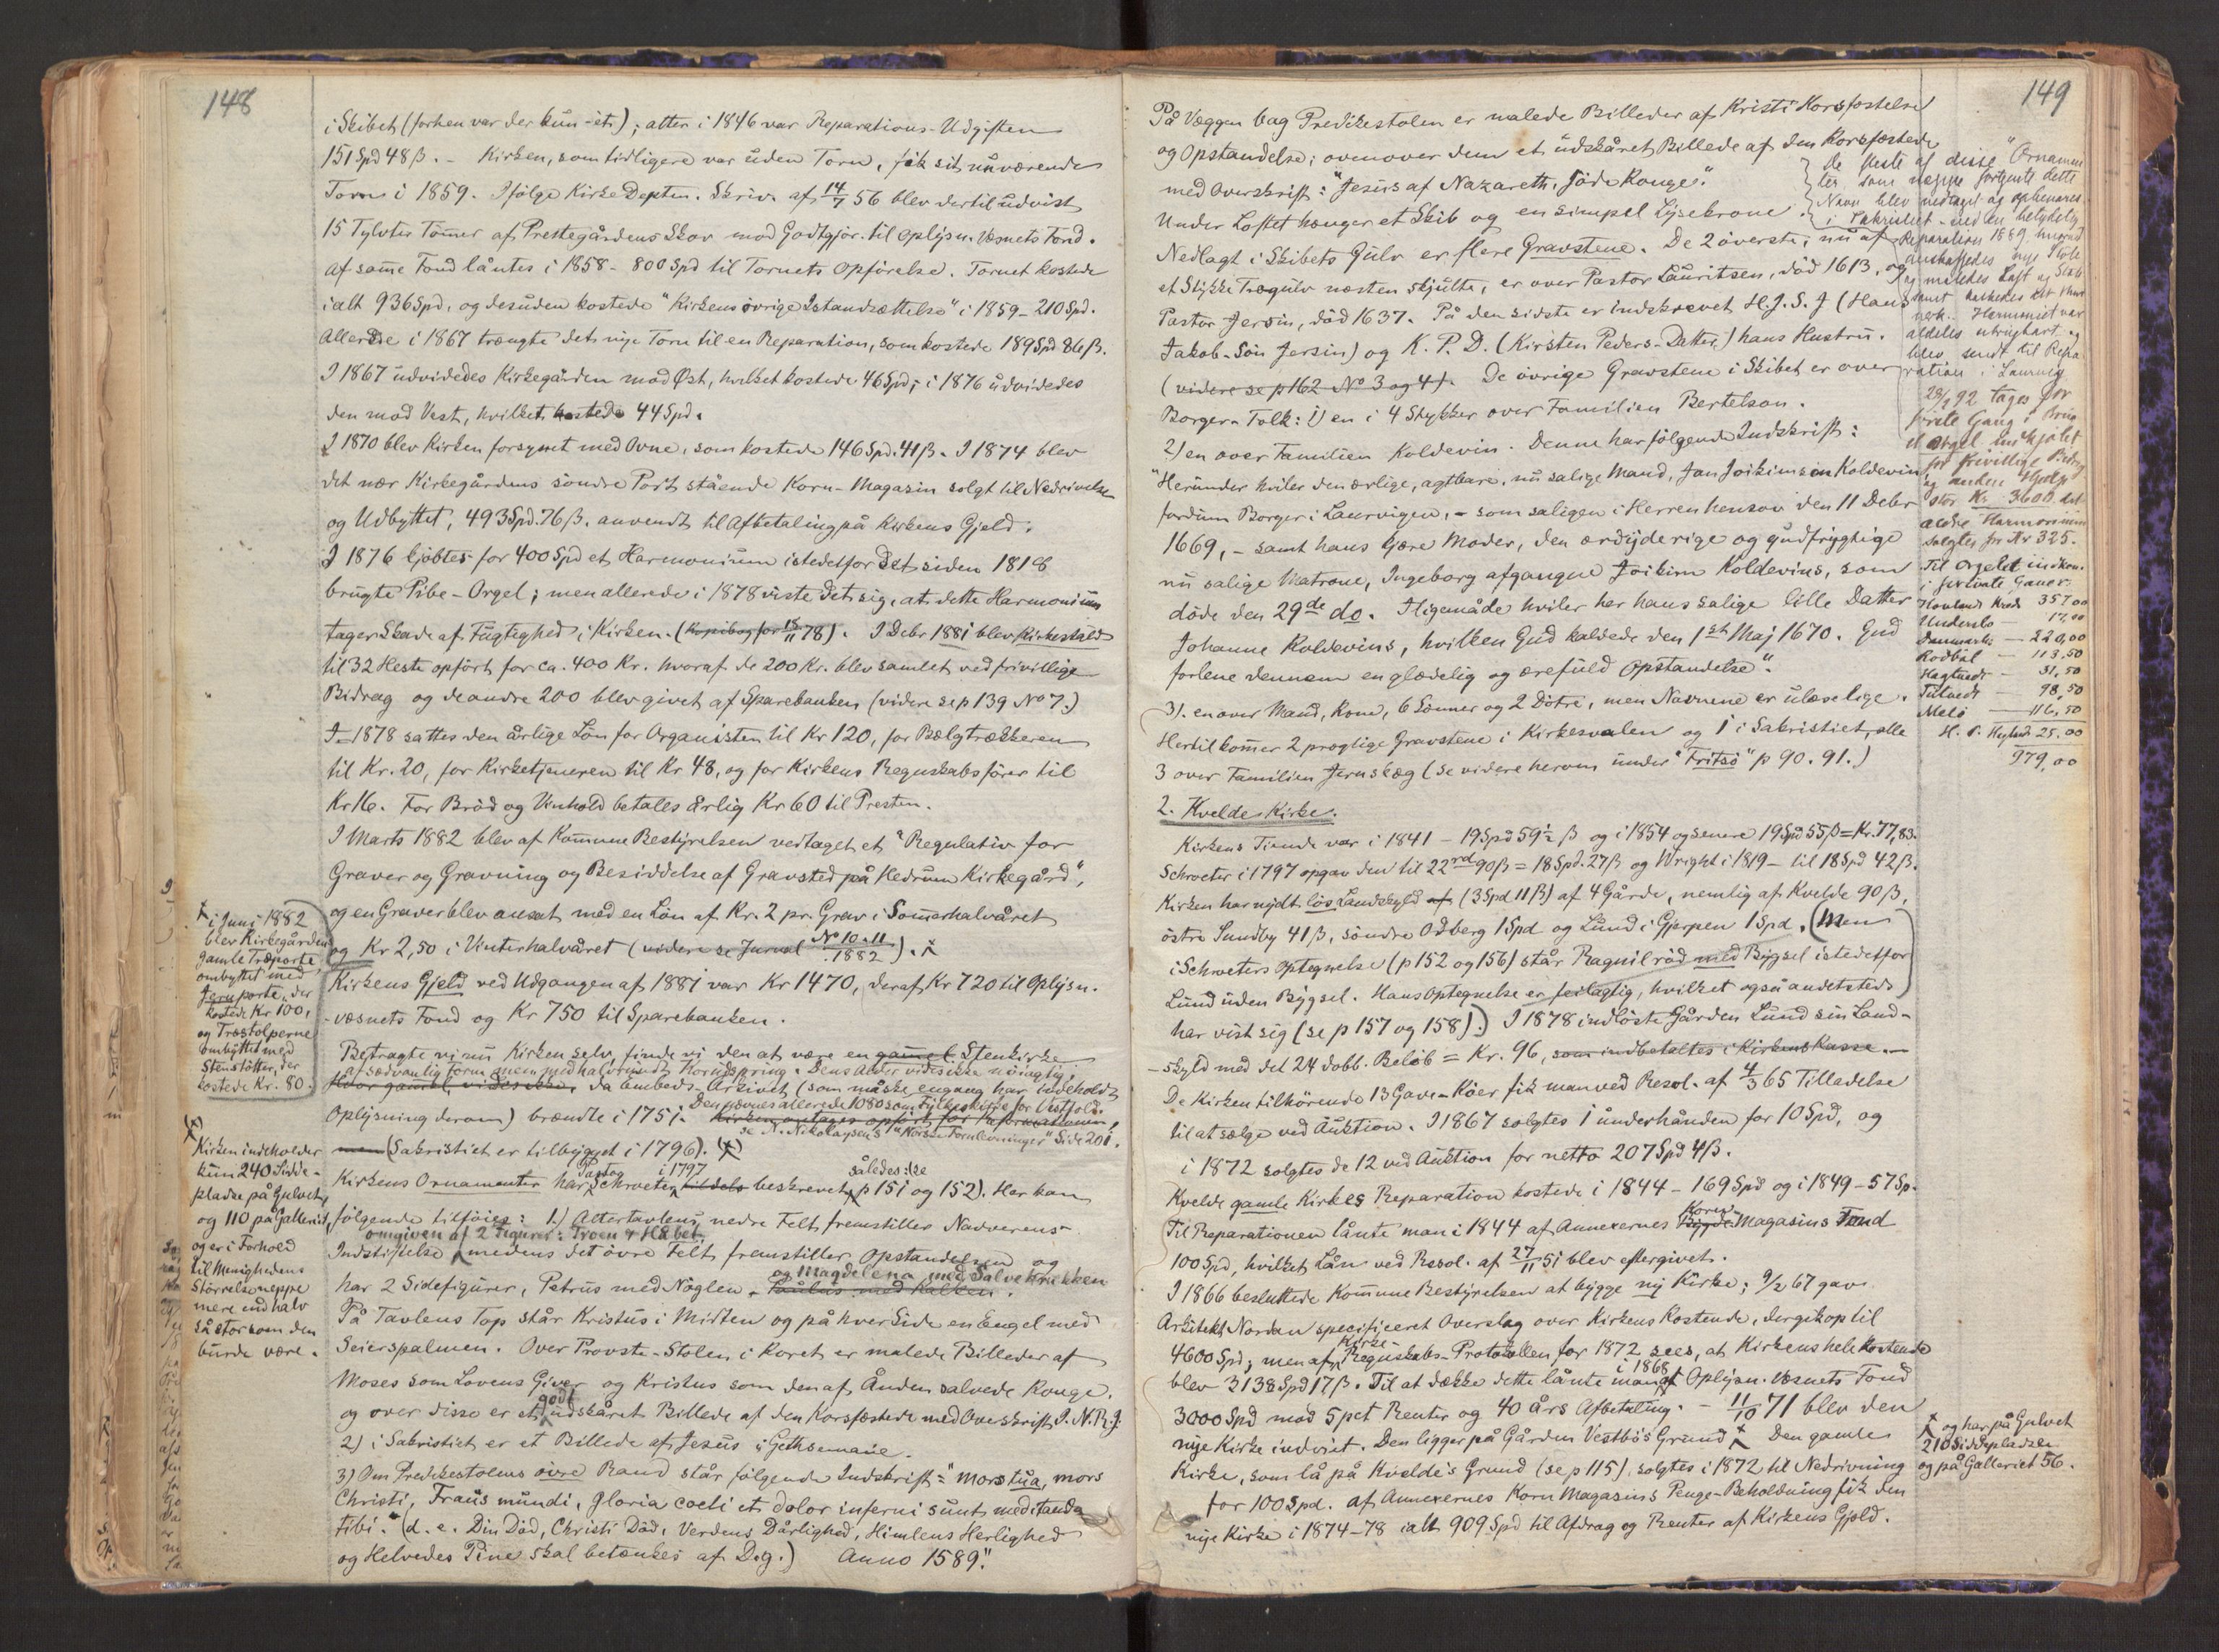 148
i Skibet (forhen var der kun -et-); atter i 1846 var Reparations-Udgiften
151 Spd 48 β. - Kirken, som tidligere var uden Torn, fik sit nuværende
Torn i 1859. Ifølge Kirke Depten. Skriv. af 14/7 56 blev dertil udvist
15 Tylvter Tømer af Prestegårdens Skov mod Godtgjør. til Oplysn. Væsnets Fond.
Af same Fond låntes i 1858 - 800 Spd til Tornets Opførelse. Tornet kostede
ialt 936 Spd, og desuden kostede "Kirkens øvrige Istandsættelse" i 1859 - 210 Spd.
Allerede i 1867 trængte det nye Torn til en Reparation, som kostede 189 Spd 86 β.
I 1867 udvidedes Kirkegården mod Øst, hvilket kostede 46 Spd; i 1876 udvidedes
den mod Vest, hvilket kostede 44 Spd.
I 1870 blev Kirken forsynet med Ovne, som kostede 146 Spd. 41 β. I 1874 blev
det nær Kirkegårdens søndre Port stående Korn-Magasin solgt til Nedrivelse
og Udbyttet, 493 Spd. 76 β. anvendt til Afbetaling på Kirkens Gjeld.
I 1876 kjøbtes for 400 Spd et Harmonium istedetfor det siden 1818
brugte Pibe-Orgel; men allerede i 1878 viste det sig, at dette Harmonium
tager Skade af Fugtighed i Kirken. (Kopibog for 15/11 78). I Debr 1881 blev Kirkestald
til 32 Heste opført for ca. 400 Kr. hvoraf de 200 Kr. blev samlet ved frivillige
Bidrag og de andre 200 blev givet af Sparebanken (videre se p 139 No 7.)
I 1878 sattes den årlige Løn for Organisten til Kr 120, for Bælgtrækkeren
til Kr. 20, for Kirketjeneren til Kr 48, og for Kirkens Regnskabsfører til
Kr 16. For Brød og Vinhold betales årlig Kr 60 til Presten.
I Marts 1882 blev af Komune Bestyrelsen vedtaget et "Regulativ for
Graver og Gravning og Besiddelse af Gravsted på Hedrum Kirkegård",
og en Graver blev ansat med en Løn af Kr. 2 pr. Grav i Somerhalvåret
og Kr 2,50 i Vinterhalvåret (videre se Jurnal No 10 - 11 / 1882).
i Juni 1882
blev Kirkegårdens
gamle Træporte
ombyttet med
Jernporte, der
kostede Kr 100,
og Træstolperne
ombyttet med
Stenstøtter, der
kostede Kr. 80.
Kirkens Gjeld ved Udgangen af 1881 var Kr 1470, deraf Kr 720 til Oplysn.
-væsnets Fond og Kr 750 til Sparebanken.
Betragte vi nu Kirken selv, finde vi den at være en gamel Stenkirke
af sædvanlig Form, men med halvrundt Korudspring. Dens Alder vides ikke nøiagtig,
Hvor gamel vides ikke, da Embeds-Arkivet (som måske engang har indeholdt
Oplysning derom) brændte i 1751. Den nævnes allerede 1080 som Fylkeskirke for Vestfold.
Kirken antages opført før Reformationen,
se N. Nikolaysens "Norske Fornlevninger" Side 201.
men (Sakristiet er tilbygget i 1796).
Kirken indeholder
kun 240 Sidde-
pladse på Gulvet,
og 110 på Galleriet,
og er i Forhold
til Menighedens
Størrelse neppe
mere end halv
så stor som den
burde være.
Kirkens Ornamenter har Pastor Schroeter i 1797 tildels beskrevet således: (se p 151 og 152). Her kan
følgende tilføies: 1.) Altertavlens nedre Felt fremstiller Nadverens
Indstiftelse omgiven af 2 Figurer: Troen & Håbet, medens det øvre Felt fremstiller Opstandelsen og
har 2 Sidefigurer, Petrus med Nøglen og Magdelena med Salvekrukken. Paulus med Kalken.
På Tavlens Top står Kristus i Midten og på hver Side en Engel med
Seierspalmen. Over Provste-Stolen i Koret er malede Billeder af
Moses som Lovens Giver og Kristus som den af Ånden salvede Konge,
og over disse er et godt udskåret Billede af den Korsfæstede med Overskrift J.N.R.J.
2) i Sakristiet er et Billede af Jesus i Gethsemane.
3) Om Predikestolens øvre Rand står følgende Indskrift: "Mors tua, mors
Christi, Fraus mundi, gloria coeli et dolor inferni sunt meditanda
tibi." (d. e. Din Død, Christi Død, Verdens Dårlighed, Himlens Herlighed
og Helvedes Pine skal betænkes af Dig.) Anno 1589".
149
På Væggen bag Predikestolen er malede Billeder af Kristi Korsfæstelse
og Opstandelse; ovenover dem et udskåret Billede af den Korsfæstede
med Overskrift: "Jesus af Nazareth, Jøde Konge".
Under Loftet hænger et Skib og en simpel Lysekrone.
Nedlagt i Skibets Gulv er flere Gravstene. De 2 øverste, nu af
et Stykke Trægulv næsten skjulte, er over Pastor Lauritsen, død 1613, og
Pastor Jersin, død 1637. På den sidste er indskrevet H. J. S. J (Hans
Jakob-Søn Jersin) og K. P. D. (Kirsten Peders-Datter) hans Hustru.
(videre se p 162 No 3 og 4). De øvrige Gravstene i Skibet er over
Borger-Folk: 1) en i 4 Stykker over Familien Bertelson.
2) en over Familien Koldevin. Denne har følgende Indskrift:
"Herunder hviler den ærlige, agtbare, nu salige Mand, Jan Joikimson Koldevin
fordum Borger i Laurvigen, - som saligen i Herren hensov den 11 Debr
1669, - samt hans kjære Moder, den ærdyderige og gudfrygtige
nu salige Matrone, Ingeborg afgangne Joikim Koldevins, som
døde den 29de do. Iligemåde hviler her hans salige lille Datter
Johanne Koldevins, hvilken Gud kaldede den 1ste Maj 1670. Gud
forlene dennem en glædelig og ærefuld Opstandelse".
3). en over Mand, Kone, 6 Sønner og 2 Døtre, men Navnene er ulæselige.
Hertil komer 2 prægtige Gravstene i Kirkesvalen og 1 i Sakristiet, alle
3 over Familien Jernskæg (se videre herom under "Fritsø" p 90. 91.)
De fleste af disse "Ornamen
ter som neppe fortjente dette
Navn blev nedtaget og opbevares
i Sakristiet - ved en betydelig
Reparation 1889, hvorved
anskaffedes nye Stole
og maledes Loft og
Harmoniet var
aldeles ubrugbart og
blev sendt til Repa-
ration i Laurvig
28/8 92 tages for
første Gang i Brug
et Orgel indkjøbt
for frivillige Bidrag
stor Kr. 3600. Det
ældre Harmonium
solgtes for Kr 325.
Til Orgelet indkom
i private Gaver:
Hovland Kreds 357,00
Undersbo — 17,00
Danmarks — 220,00
Rødbøl — 113,50
Hagtvedt — 31,50
Tutvedt — 98,50
Melø — 116,50
25,00
979,00
2. Kvelde Kirke.
Kirkens Tiende var i 1841 - 19 Spd 59½ β og i 1854 og senere 19 Spd 55 β = Kr. 77,83.
Schroeter i 1797 opgav den til 22 rd 90 β = 18 Spd. 27 β og Wright i 1819 - til 18 Spd 42 β.
Kirken har nydt løs Landskyld af (3 Spd 11 β) af 4 Gårde, nemlig af Kvelde 90 β,
østre Sundby 41 β, søndre Odberg 1 Spd og Lund i Gjerpen 1 Spd. (Men
i Schroeters Optegnelse (p 152 og 156) står Ragnilrød med Bygsel istedetfor
Lund uden Bygsel. Hans Optegnelse er feilagtig, hvilket også andetsteds
har vist sig (se p 157 og 158)). I 1878 indløste Gården Lund sin Land-
-skyld med det 24 dobb. Beløb = Kr. 96, som indbetaltes i Kirkens Kasse.
De Kirken tilhørende 13 Gave-Køer fik man ved Resol. af 4/3 65 Tilladelse
til at sælge ved Auktion. I 1867 solgtes 1 underhånden for 10 Spd, og
i 1872 solgtes de 12 ved Auktion for netto 207 Spd 4 β.
Kvelde gamle Kirkes Reparation kostede i 1844 - 169 Spd og i 1849 - 57 Sp.
Til Reparationen lånte man i 1844 af Annexernes Bygde Korn-Magasins Fond
100 Spd, hvilket Lån ved Resol. af 27/11 51 blev eftergivet.
I 1866 besluttede Komune Bestyrelsen at bygge ny Kirke; 9/2 67 gav
Arkitekt Nordan specificeret Overslag over Kirkens Kostende, der gik op til
4600 Spd; men af Kirke-Regnskabs-Protokollen for 1872 sees, at Kirkens hele Kostende
blev 3138 Spd 17 β. Til at dække dette lånte man i 1868 af Oplysn. Væsnets Fond
3000 Spd mod 5 pct Renter og 40 Års Afbetaling. - 11/10 71 blev den
nye Kirke indviet. Den ligger på Gården Vestbøs Grund. Den gamle
Kirke, som lå på Kvelde's Grund (se p 115), solgtes i 1872 til Nedrivning
for 100 Spd. Af Annexernes Korn Magasins Penge-Beholdning fik den
nye Kirke i 1874-78 ialt 909 Spd til Afdrag og Renter af Kirkens Gjeld.
og har på Gulvet
210 Siddepladser
og på Galleriet 56.